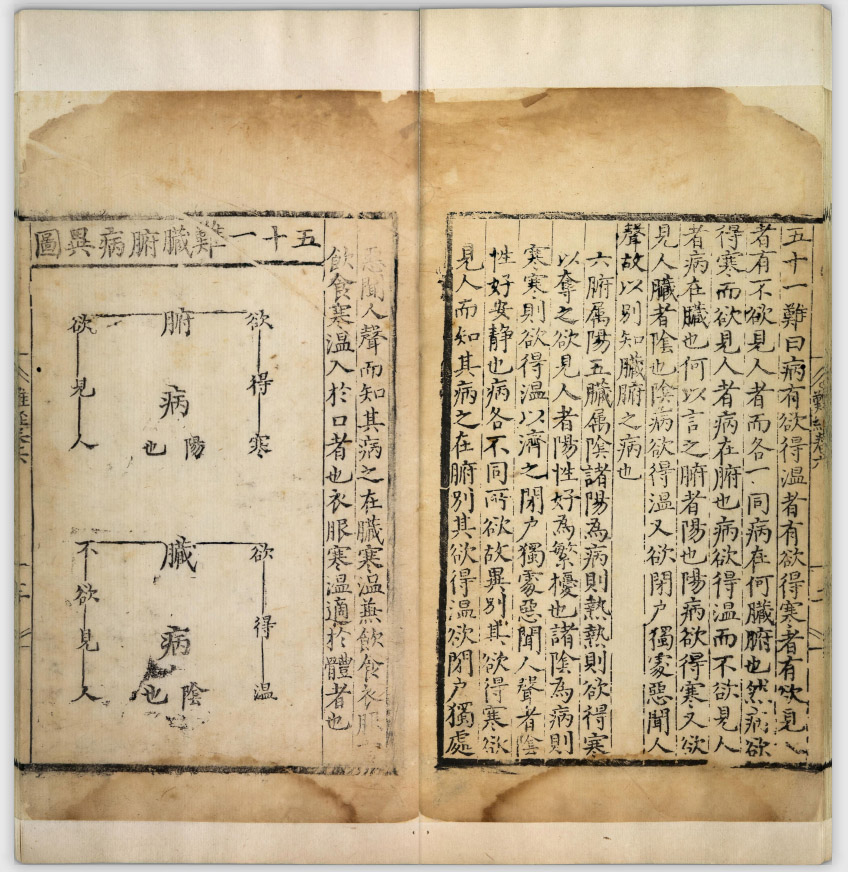 五十一難曰病有欲得溫者有欲得寒者有欲見
者有不欲見人者而各一同病在何臟腑也然病欲
得寒而欲見人者病在腑也病欲得溫而不欲見人
者病在臟也何以言之腑者陽也陽病欲得寒又欲
見人臟者陰也陰病欲得溫又欲閉户獨處惡聞人
聲故以別知臟腑之病也
六腑属陽五臟属陰諸陽為病則熱熱則欲得寒
以奪之欲見人者陽性好為繁擾也諸陰為病則
寒寒則欲得溫以濟之閉户獨處惡聞人聲者陰
性好安静也病各不同所欲故異別其欲得寒欲
見人而知其病之在腑別其欲得溫欲閉户獨處
惡聞人聲而知其病之在臟寒溫兼飲食衣服
飲食寒溫入於口者也衣服寒溫適於體者也
五十一難臟腑病異圖
欲得寒
腑病
陽也
欲見人
欲得温
臟病
陰也
不欲見人
難經卷六